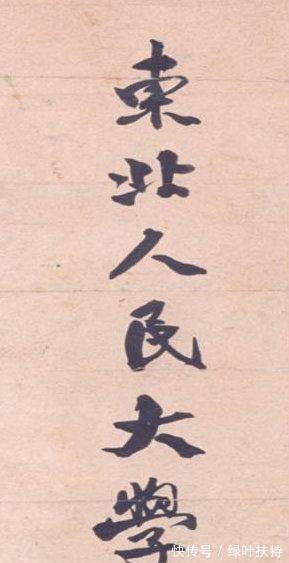 東北人民大學
快传号/绿叶扶持